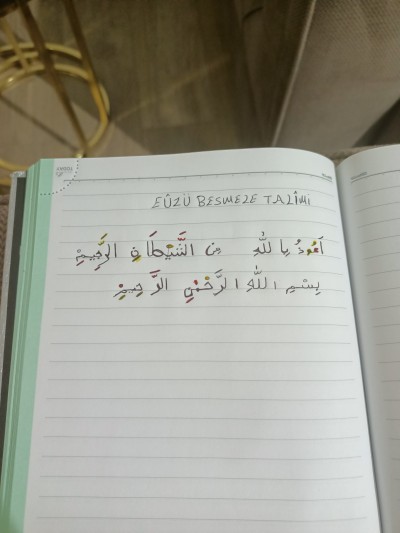 EÛZÜ BESMELE TALİMİ
اَعُوذُ بِا للّٰهِ مِنَ الشَّيْطَانِ الرَّجِيمِ
بِسْمِ اللّٰهِ الرَّحْمٰنِ الرَّحِيمِ